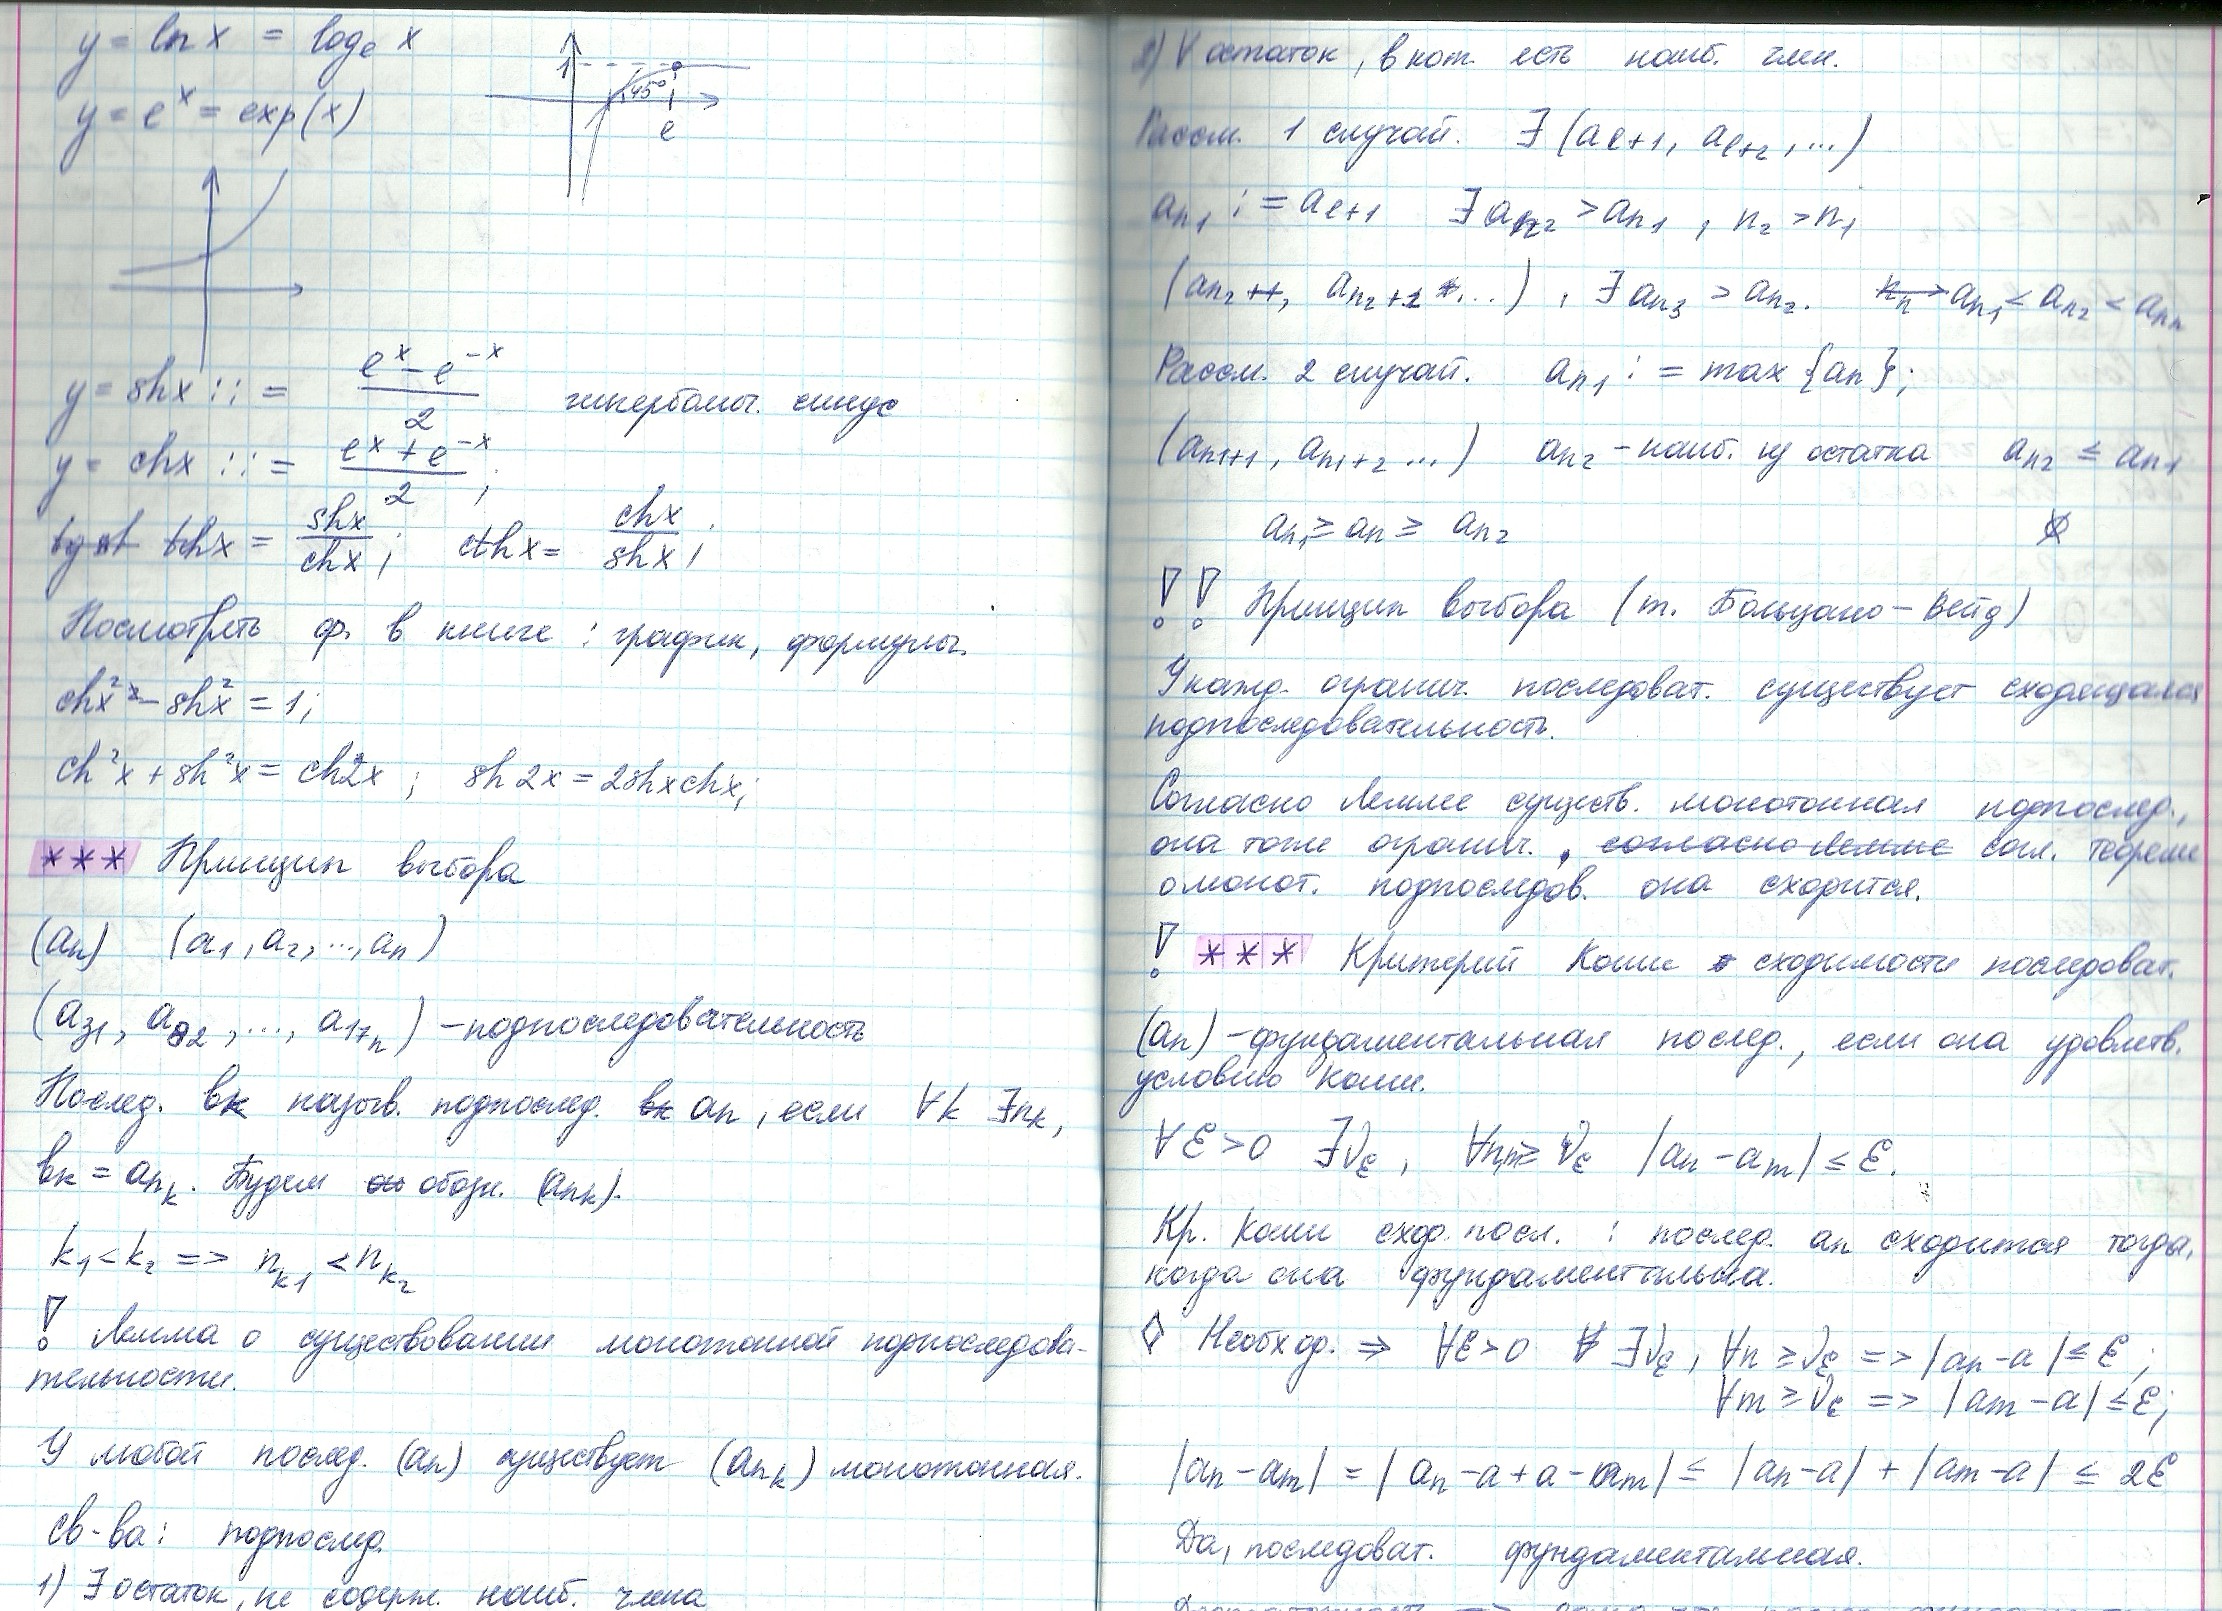 y = ln x = log_e x
y = e^x = exp(x)
1
45°
e
y = shx ::= (e^x - e^-x)/2 гиперболич. синус
y = chx ::= (e^x + e^-x)/2 ;
thx = shx/chx ; cthx = chx/shx ;
Посмотреть ф. в книге : график, формулы.
chx² - shx² = 1;
ch²x + sh²x = ch2x ; sh 2x = 2shxchx;
*** Принцип выбора
(an) (a1, a2, ..., an)
(a31, a82, ..., a17n) - подпоследовательность
Послед. вк назыв. подпослед. an, если ∀k ∃nk,
вк = ank. Будем обозн. (ank).
k1 < k2 => nk1 < nk2
! Лемма о существовании монотонной подпоследова-
тельности.
У любой послед. (an) существует (ank) монотонная.
св-ва: подпослед.
1) ∃ остаток, не содерж. наиб. члена
2) ∀ остаток, в кот. есть наиб. член.
Рассм. 1 случай. ∃ (ae+1, ae+2, ...)
an1 := ae+1 ∃ an2 > an1 , n2 > n1
(an2, an2+1, ...) , ∃ an3 > an2. an1 < an2 < ann
Рассм. 2 случай. an1 := max {an};
(an1+1, an1+2 ...) an2 - наиб. из остатка an2 ≤ an1
an1 ≥ an ≥ an2
!! Принцип выбора (т. Больцано - Вейд)
У кажд. огранич. последоват. существует сходящаяся
подпоследовательность.
Согласно Лемме существ. монотонная подпослед.,
она тоже огранич., согласно лемме согл. теореме
о монот. подпоследов. она сходится.
! *** Критерий Коши сходимости последоват.
(an) - фундаментальная послед., если она удовлетв.
условию Коши.
∀ε > 0 ∃νε , ∀n,m ≥ νε |an - am| ≤ ε.
Кр. Коши сход. посл. : послед. an сходится тогда,
когда она фундаментальна.
◊ Необход. ⇒ ∀ε > 0 ∃νε, ∀n ≥ νε => |an - a| ≤ ε ;
∀m ≥ νε => |am - a| ≤ ε;
|an - am| = |an - a + a - am| ≤ |an - a| + |am - a| ≤ 2ε
Да, последоват. фундаментальная.